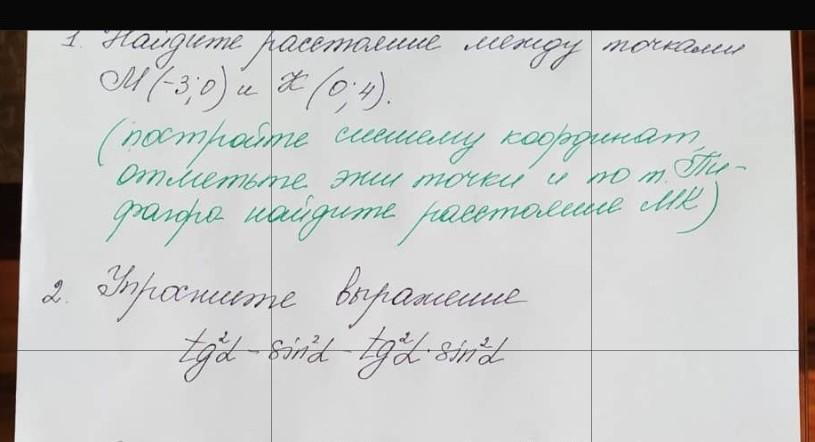 1. Найдите расстояние между точками
М(-3;0) и К(0;4).
(постройте систему координат,
отметьте эти точки и по т. Пи-
фагора найдите расстояние МК)
2. Упростите выражение
tg²α - sin²α - tg²α · sin²α